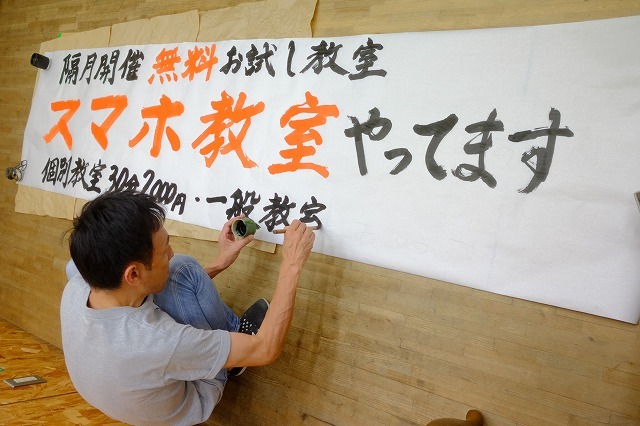 隔月開催 無料お試し教室
スマホ教室やってます
個別教室30分2000円・一般教室